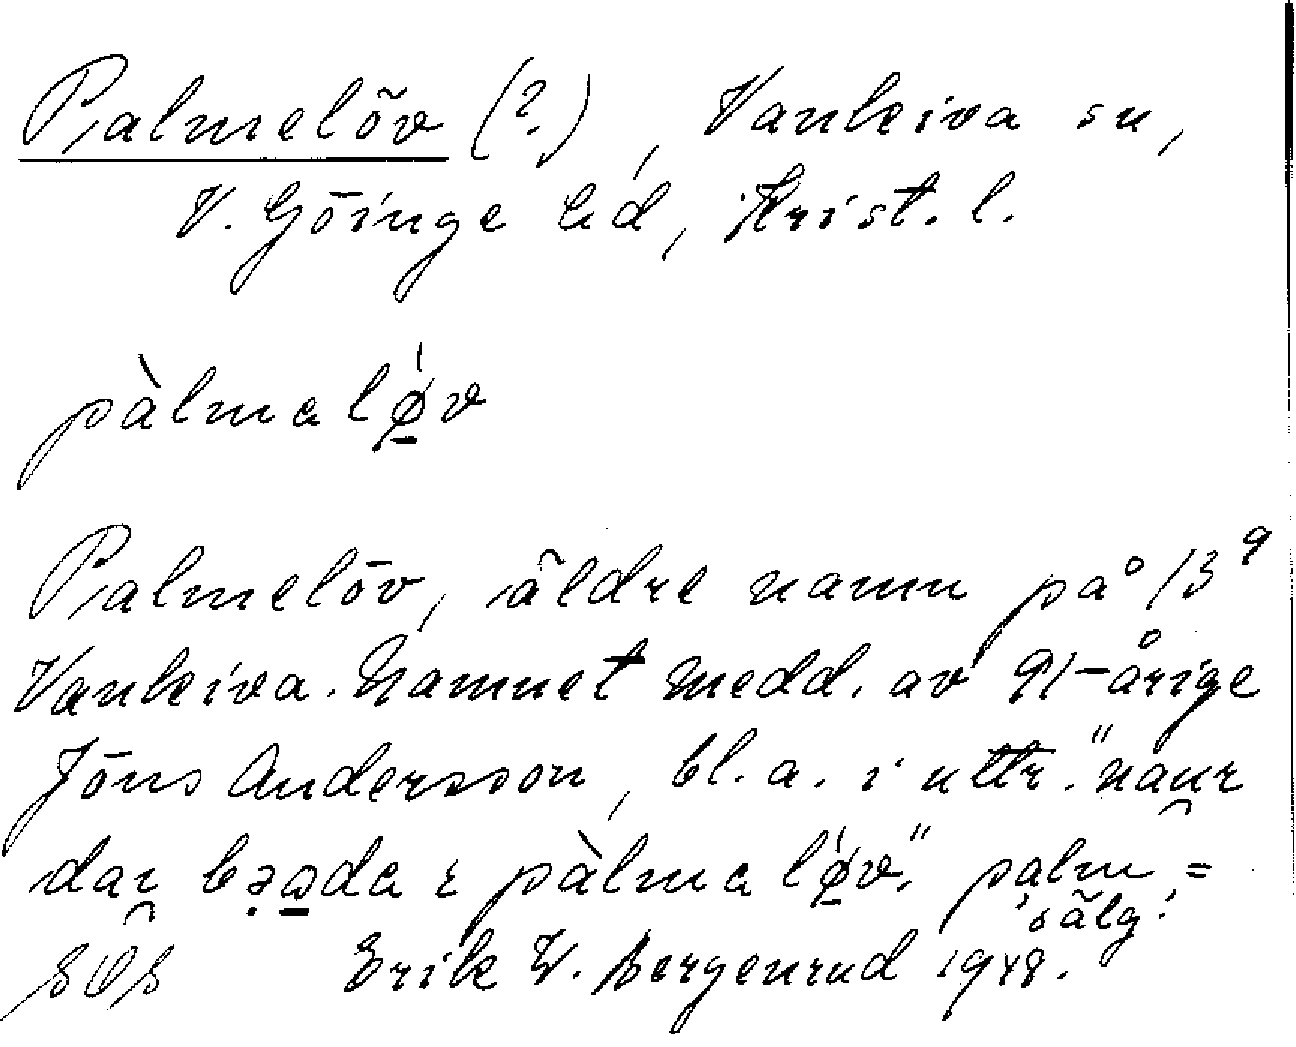 Palmelöv (?), Vankiva sn,
V. Göinge hd, Krist. l.
pàlmaló̱v
Palmelöv, äldre namn på 13⁹
Vankiva. Namnet medd. av 91-årige
Jöns Andersson, bl. a. i uttr. "naur
dai bəa̱da i pàlmalǿ̱v". palm =
'sälg'.
SOS Erik W. Bergenrud 1948.